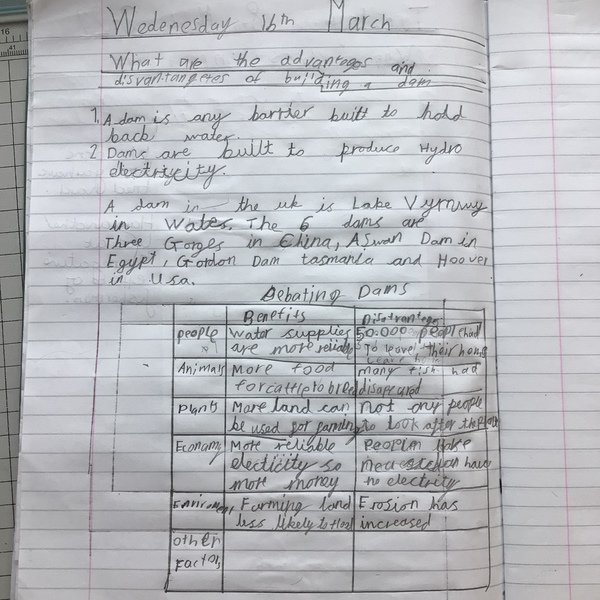 Wedenesday 16th March
What are the advanteges and
disvantangeres of building a dam
1. A dam is any barrier built to hold
back water.
2 Dams are built to produce Hydro
electricity.
A dam in the uk is Lake Vyrnwy
in Wates. The 6 dams are
Three Gorges in China, Aswan Dam in
Egypt, Gordon Dam tasmania and Hoover
in Usa.
Debating Dams
Benefits
people
Water supplies
are more reliable
50.000 peopl had
To leave their home
Animals
More food
for cattle to breed
many fish had
disapeared
Plants
More land can
be used for farming
not any people
to look after the
Economy
More reliable
electicity so
more money
have
no electrity
Farming land
less likely to flood
Erosion has
increased
other
Factors